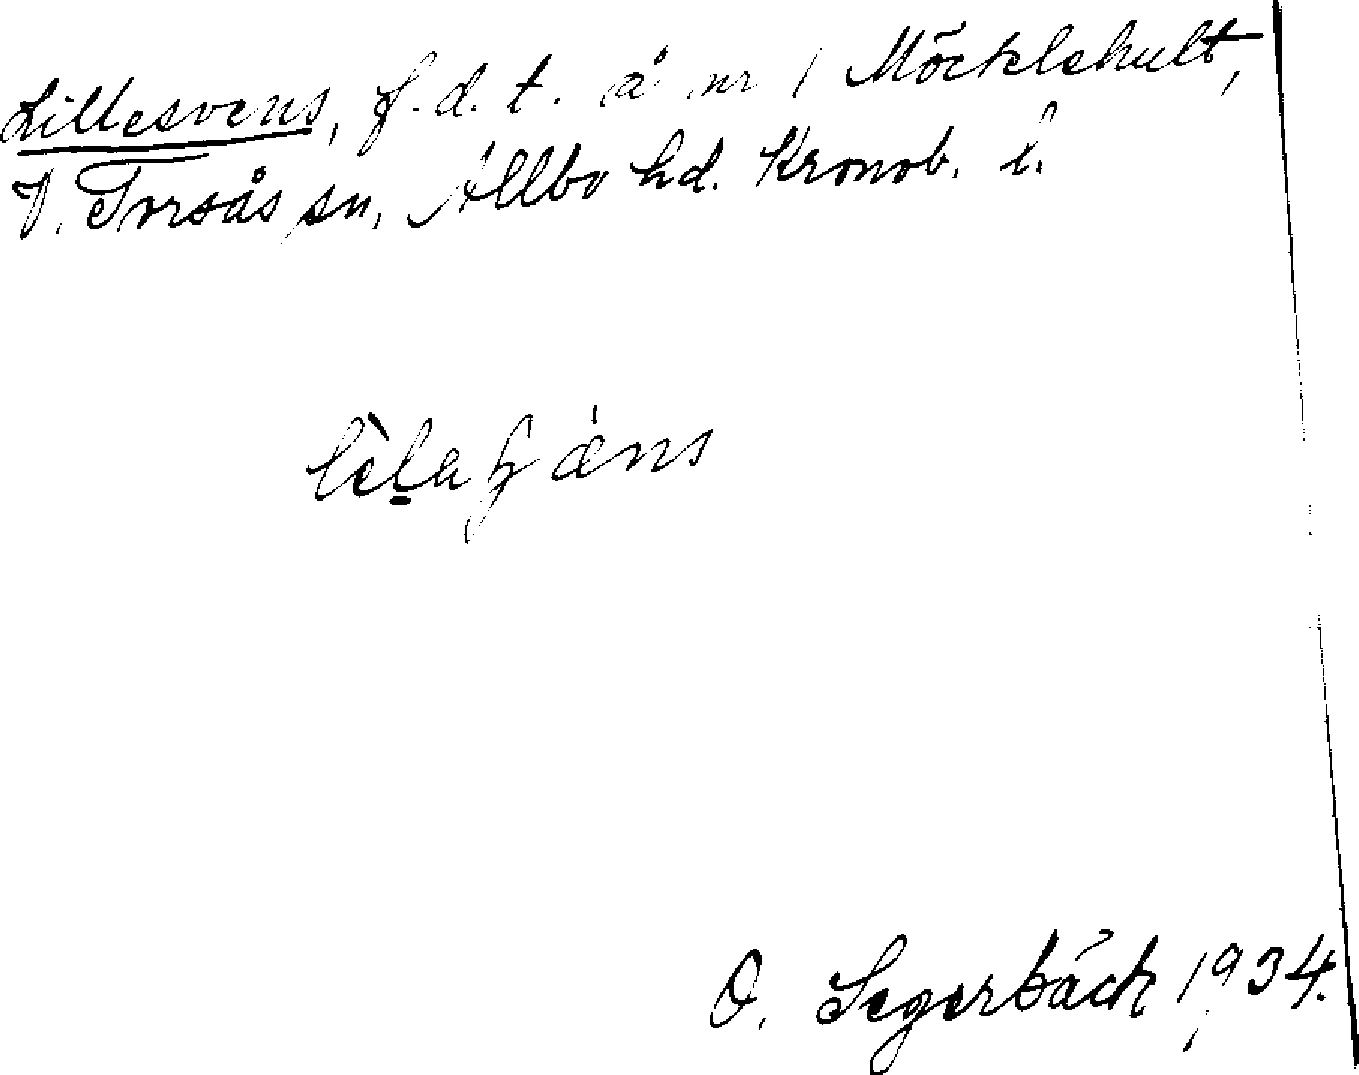 Lillesvens, f.d. t. å nr 1 Möcklehult,
V. Torsås sn, Allbo hd. Kronob. l.
O. Segerbäck 1934.